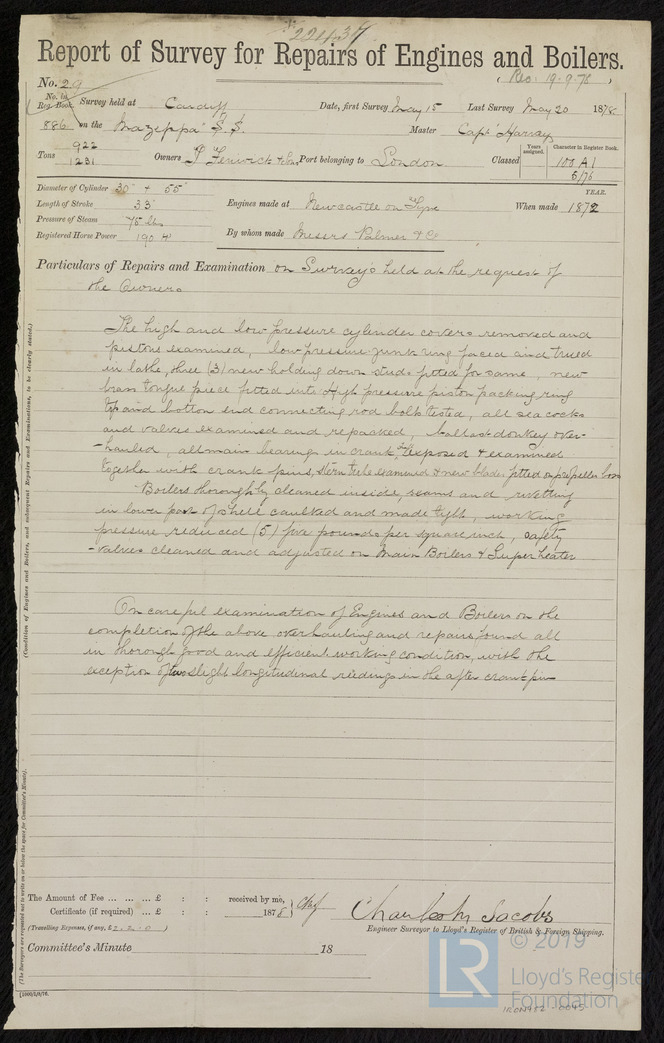 22437
Report of Survey for Repairs of Engines and Boilers.
No. 29
(Rec. 19.9.76)
No. in Reg. Book. Survey held at Cardiff Date, first Survey May 15 Last Survey May 20 1878
886 on the "Mazeppa" S.S. Master Capt Harvey
Tons 922 1231 Owners J Fenwick & Son Port belonging to London Classed Years assigned. Character in Register Book. 100 A1 5/76
Diameter of Cylinder 30" + 55"
Length of Stroke 33"
Pressure of Steam 75 lbs
Registered Horse Power 190
Engines made at Newcastle on Tyne When made YEAR. 1872
By whom made Messrs Palmer & Co
Particulars of Repairs and Examination on Surveys held at the request of
the Owners
The high and low pressure cylinder covers removed and
pistons examined, low pressure junk ring faced and trued
in lathe, three (3) new holding down studs fitted for same, new
brass tongue piece fitted into High pressure piston packing ring
top and bottom end connecting rod bolts tested, all sea cocks
and valves examined and repacked, ballast donkey over-
-hauled, all main bearings in crank exposed & examined
together with crank pins, stern tube examined & new blades fitted on propeller boss
Boilers thoroughly cleaned inside, seams and rivetting
in lower part of shell caulked and made tight, working
pressure reduced (5) five pounds per square inch, safety
-valves cleaned and adjusted on Main Boilers & Superheater
On careful examination of Engines and Boilers on the
completion of the above overhauling and repairs found all
in thorough good and efficient working condition, with the
exception of two slight longitudinal reedings in the after crank pin
(Condition of Engines and Boilers, and subsequent Repairs and Examinations, to be clearly stated.)
(The Surveyors are requested not to write on or below the space for Committee's Minute).
The Amount of Fee ... ... ... £ : : received by me,
Certificate (if required) ... £ : : 1878
(Travelling Expenses, if any, £2.2.0)
Jacobs
Engineer Surveyor to Lloyd's Register of British & Foreign Shipping.
Committee's Minute 18
LR
© 2019
Lloyd's Register
Foundation
IRON452-0045